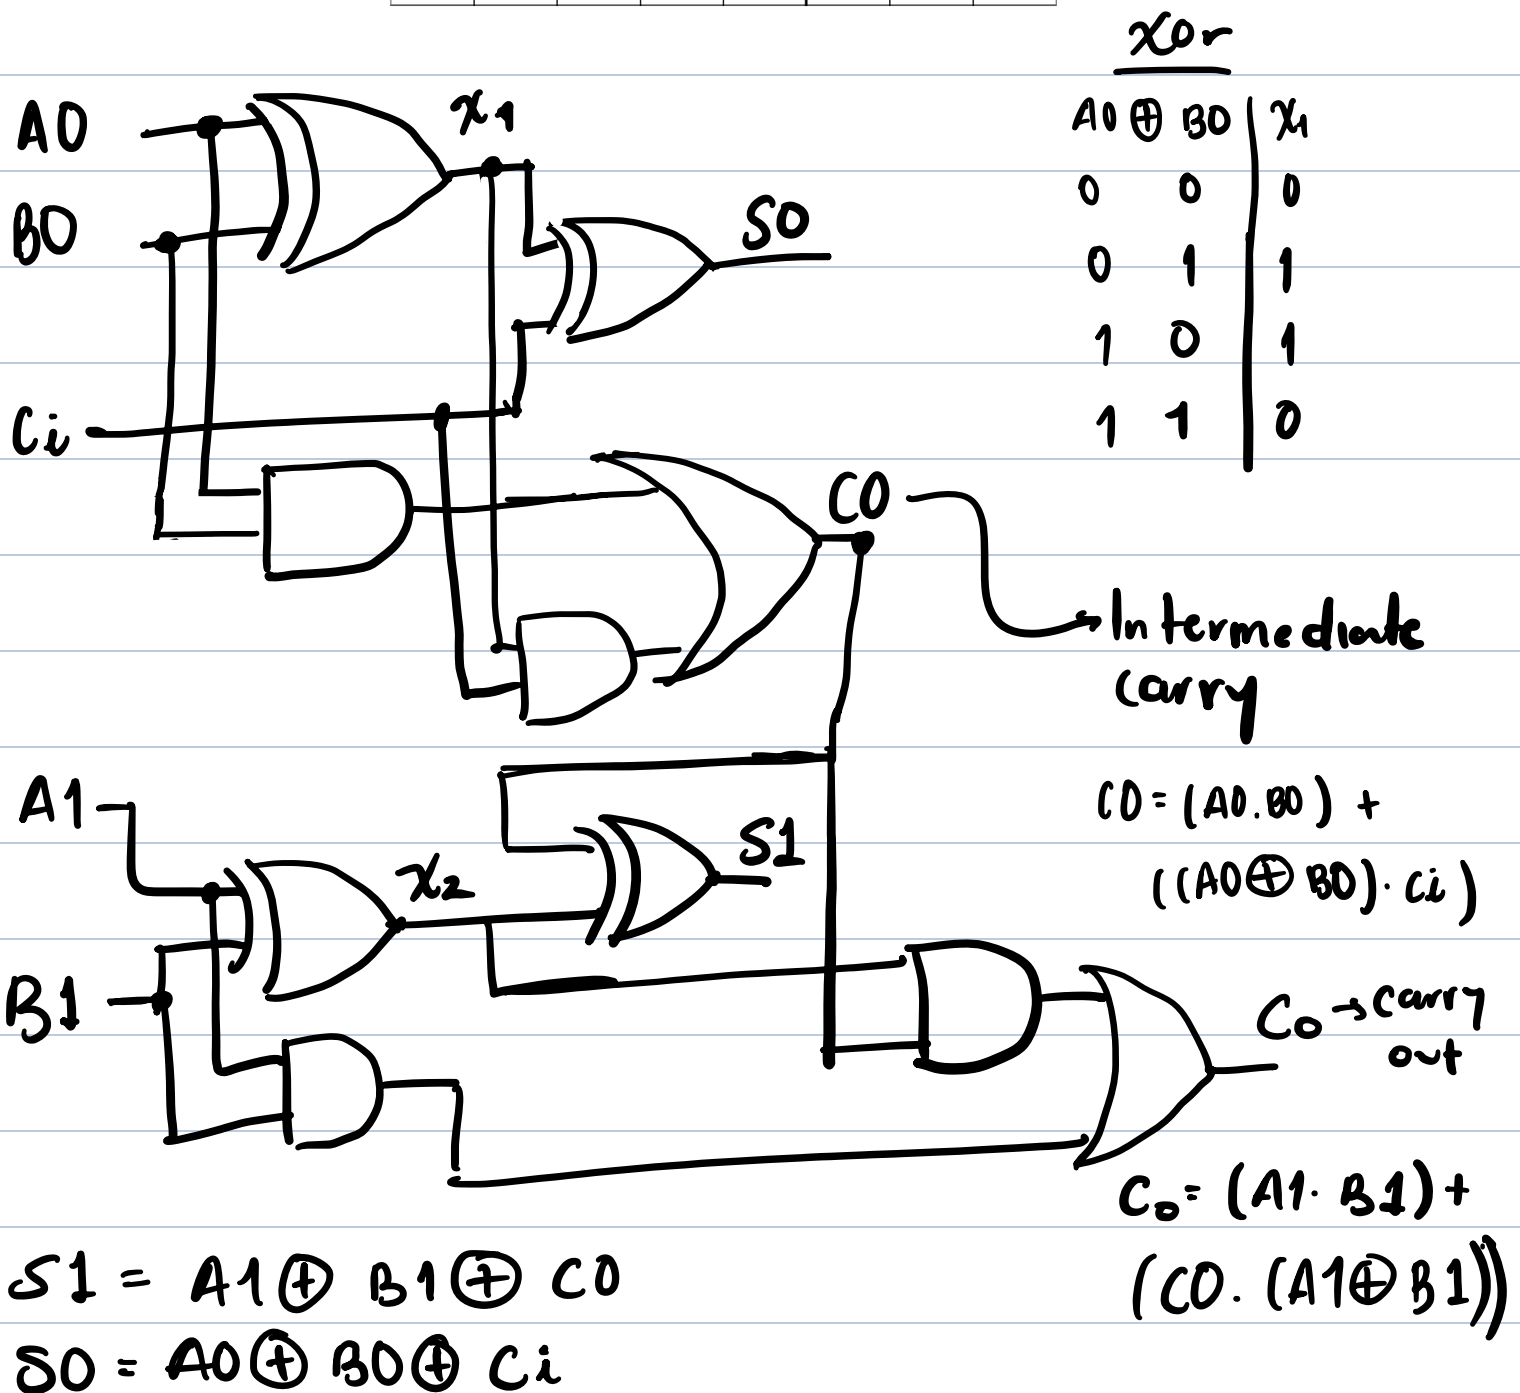 xor
A0 ⊕ B0 | x1
0 0 0
0 1 1
1 0 1
1 1 0
A0
x1
B0
S0
Ci
C0
Intermediate
carry
A1
C0 = (A0.B0) +
((A0 ⊕ B0). Ci)
S1
x2
B1
Co → carry
out
Co = (A1. B1) +
(C0. (A1 ⊕ B1))
S1 = A1 ⊕ B1 ⊕ C0
S0 = A0 ⊕ B0 ⊕ Ci